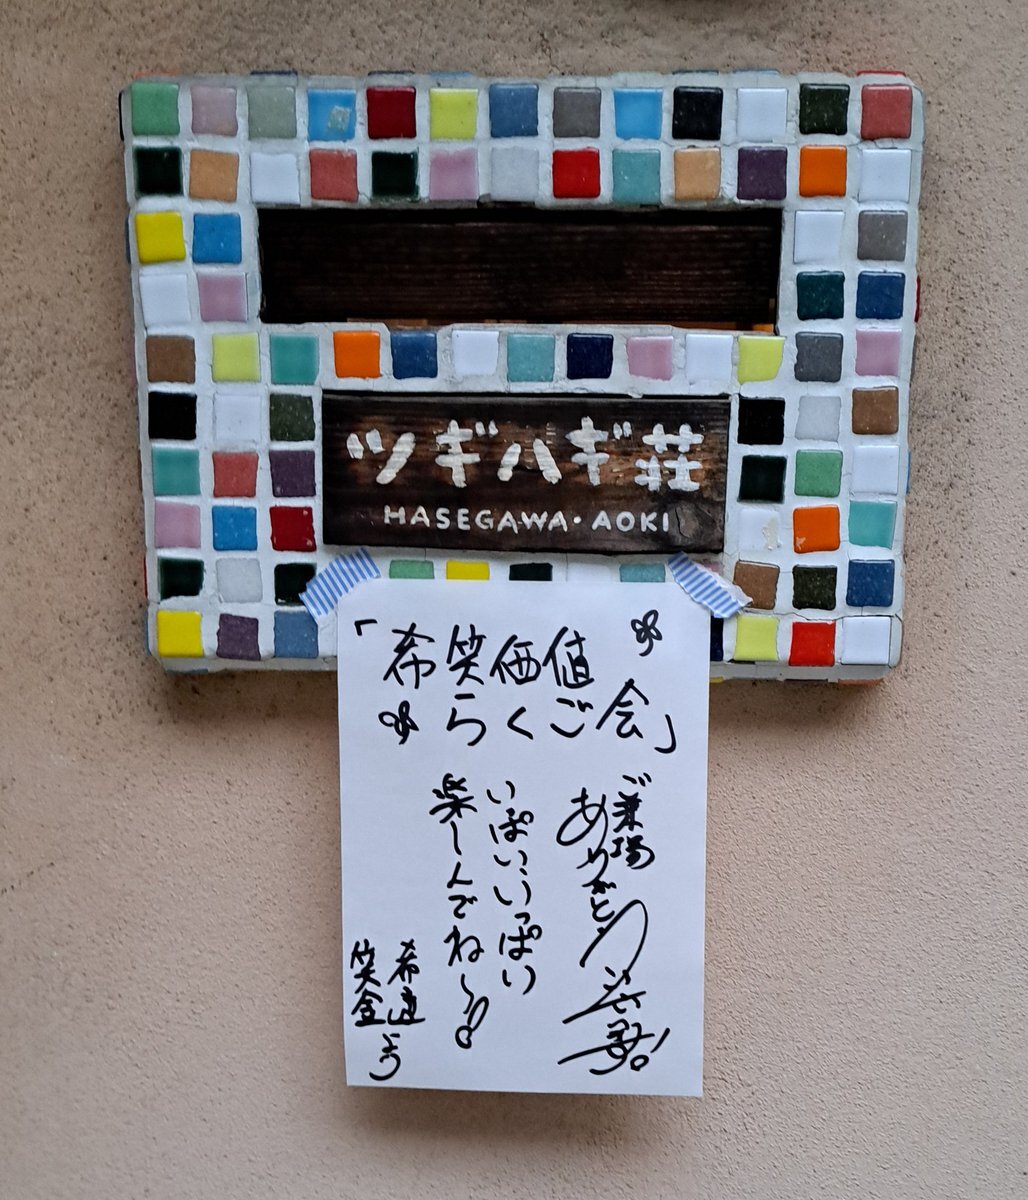 ツギハギ荘
HASEGAWA・AOKI
「希笑価値
らくご会」
ご来場
ありがとう
いっぱいいっぱい
楽しんでね〜!!
希遊
笑金
より